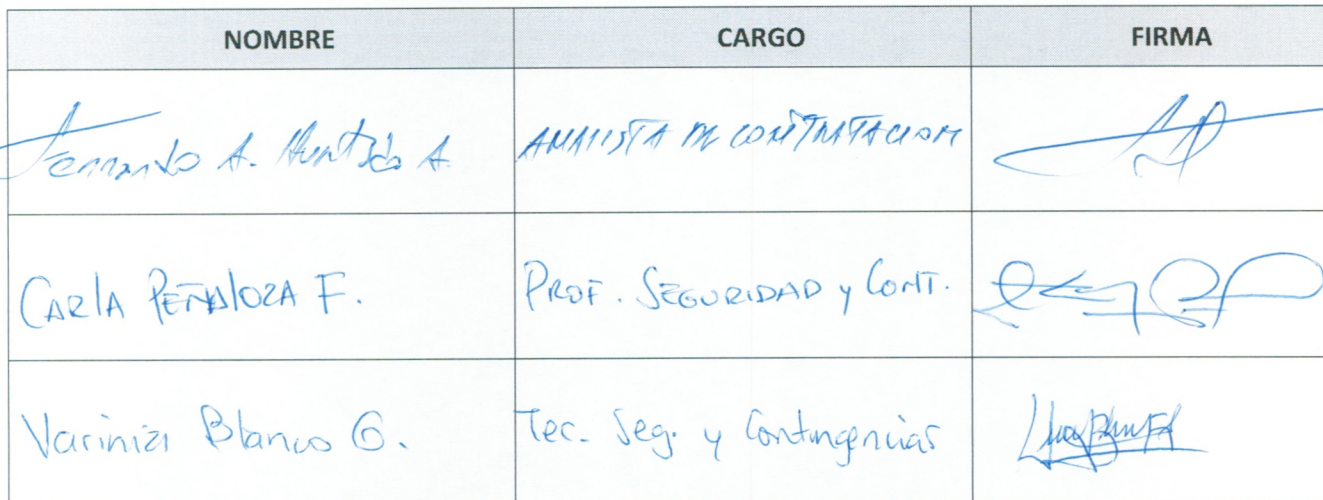 NOMBRE CARGO FIRMA
Fernando A. Hurtado A. ANALISTA DE CONTRATACION
CARLA PEÑALOZA F. PROF. SEGURIDAD y CONT.
Varinia Blanco G. Tec. Seg. y Contingencias